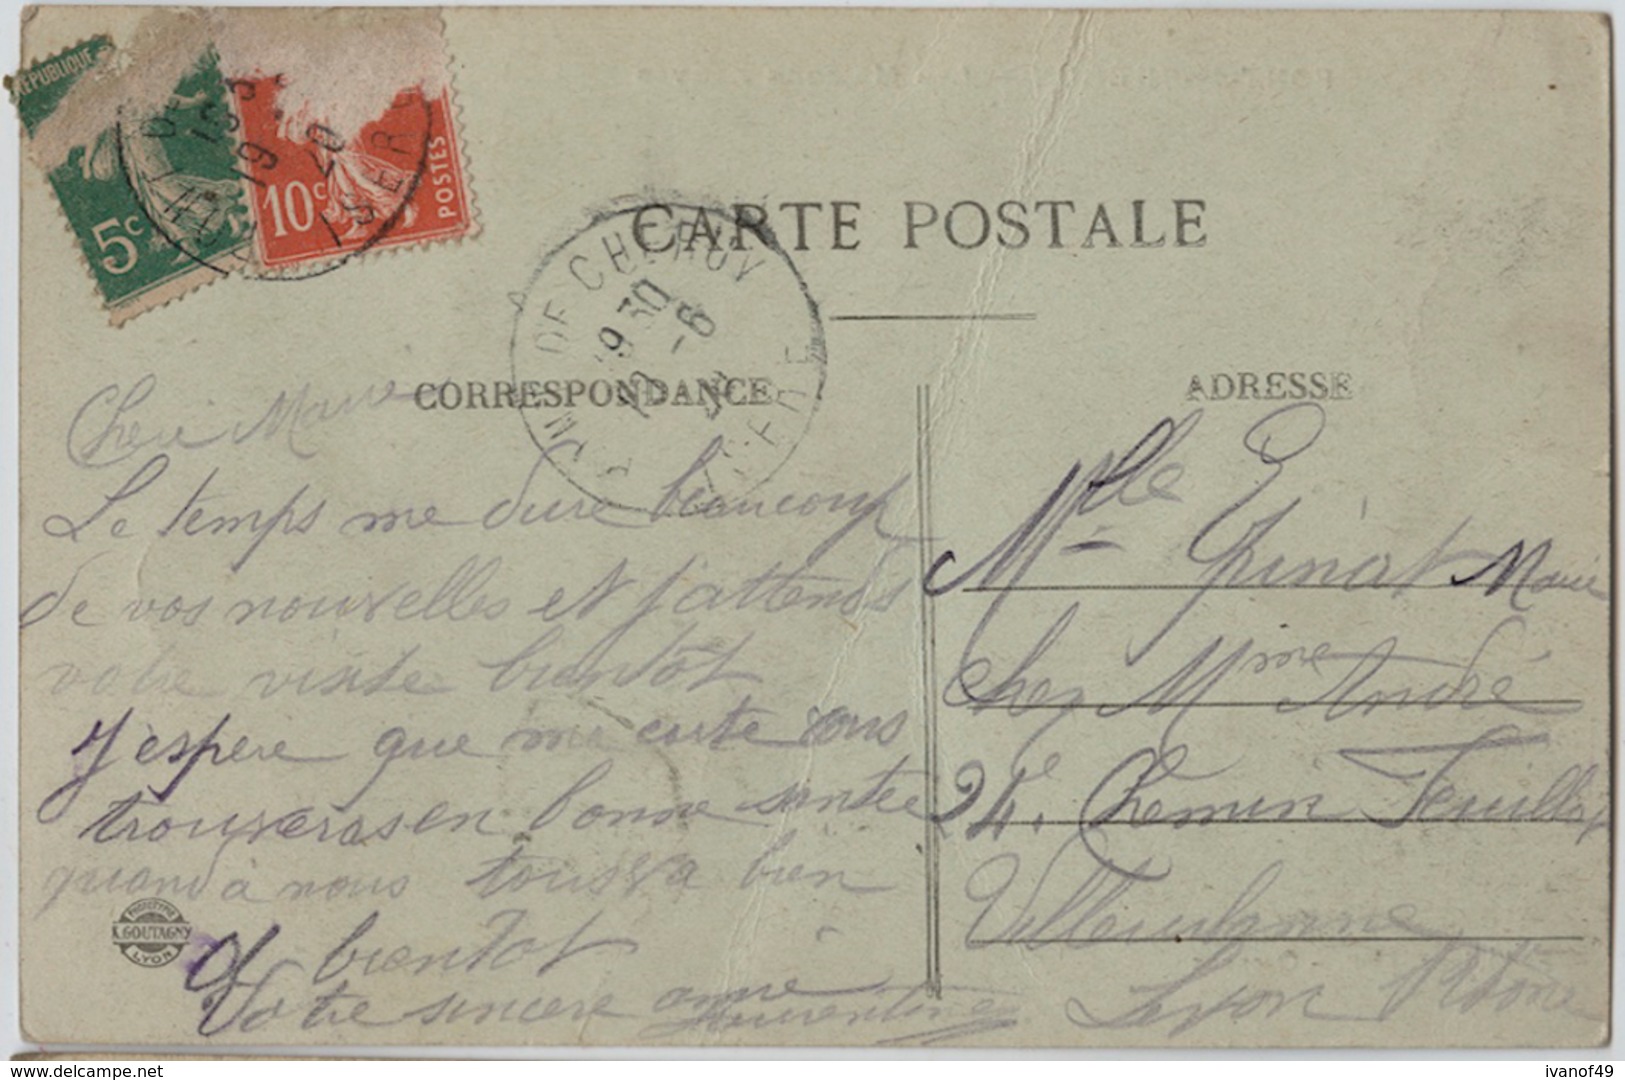 REPUBLIQUE
5c
10c
POSTES
CARTE POSTALE
DE CHERUY
19 30
-6
CORRESPONDANCE
ADRESSE
Chere Marie
Le temps me dure beaucoup
de vos nouvelles et j'attends
votre visite bientôt
J'espere que ma carte vous
trouveras en bonne santee
quand à nous tous va bien
A bientot
Votre sincere amie
Laurentine
Mlle Epinat Marie
Chez Mme André
24. Chemin Feuillat
Villeurbanne
Lyon Rhône
PHOTOTYPIE
K. GOUTAGNY
LYON
delcampe.net
ivanof49